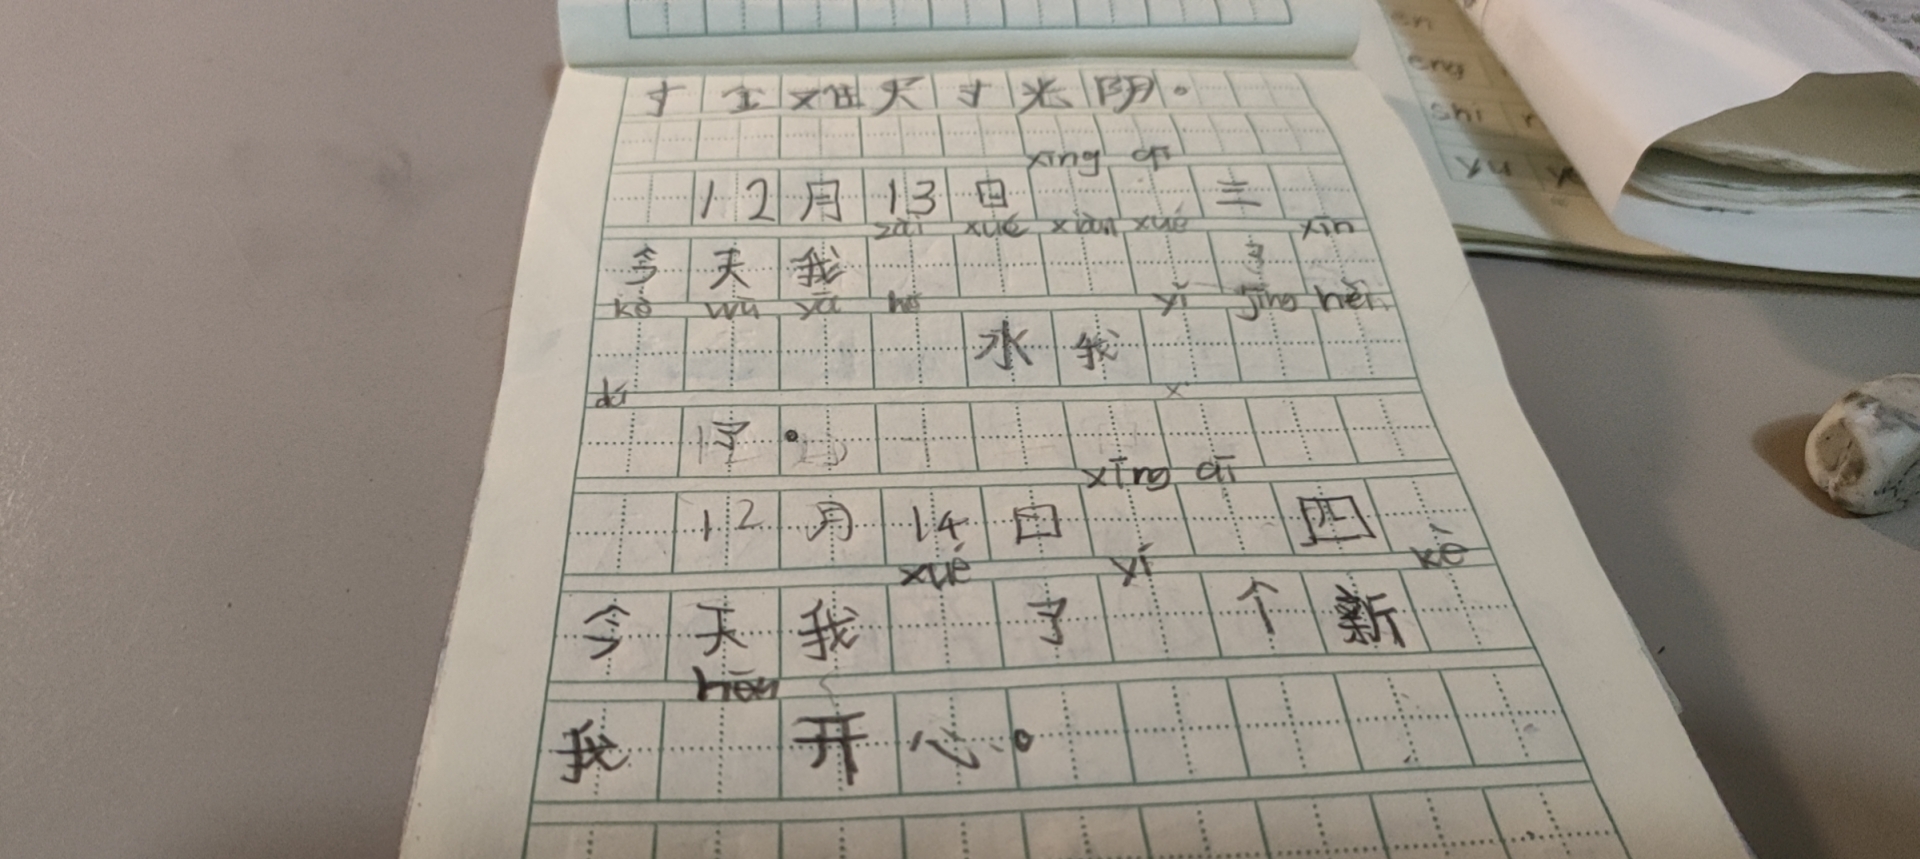 寸金难买寸光阴。
xīng qī
12月13日 三
zài xué xiào xué xīn
今天我 了
kè wū yā hē yǐ jīng hěn
水我
12月14日 四
xīng qī
xué yí kè
今天我 了 个新
hěn
我 开心。
shi
yu